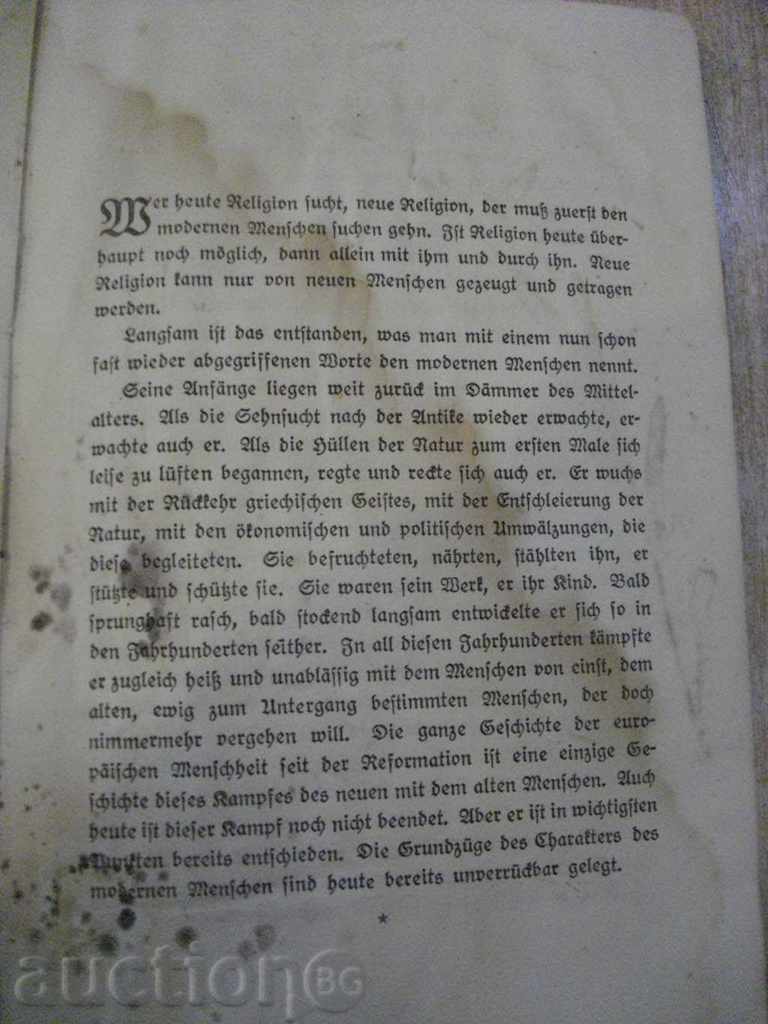 Wer heute Religion sucht, neue Religion, der muß zuerst den
modernen Menschen suchen gehn. Ist Religion heute über-
haupt noch möglich, dann allein mit ihm und durch ihn. Neue
Religion kann nur von neuen Menschen gezeugt und getragen
werden.
Langsam ist das entstanden, was man mit einem nun schon
fast wieder abgegriffenen Worte den modernen Menschen nennt.
Seine Anfänge liegen weit zurück im Dämmer des Mittel-
alters. Als die Sehnsucht nach der Antike wieder erwachte, er-
wachte auch er. Als die Hüllen der Natur zum ersten Male sich
leise zu lüften begannen, regte und reckte sich auch er. Er wuchs
mit der Rückkehr griechischen Geistes, mit der Entschleierung der
Natur, mit den ökonomischen und politischen Umwälzungen, die
diese begleiteten. Sie befruchteten, nährten, stählten ihn, er
stützte und schützte sie. Sie waren sein Werk, er ihr Kind. Bald
sprunghaft rasch, bald stockend langsam entwickelte er sich so in
den Jahrhunderten seither. In all diesen Jahrhunderten kämpfte
er zugleich heiß und unablässig mit dem Menschen von einst, dem
alten, ewig zum Untergang bestimmten Menschen, der doch
nimmermehr vergehen will. Die ganze Geschichte der euro-
päischen Menschheit seit der Reformation ist eine einzige Ge-
schichte dieses Kampfes des neuen mit dem alten Menschen. Auch
heute ist dieser Kampf noch nicht beendet. Aber er ist in wichtigsten
Punkten bereits entschieden. Die Grundzüge des Charakters des
modernen Menschen sind heute bereits unverrückbar gelegt.
*
auctionBG